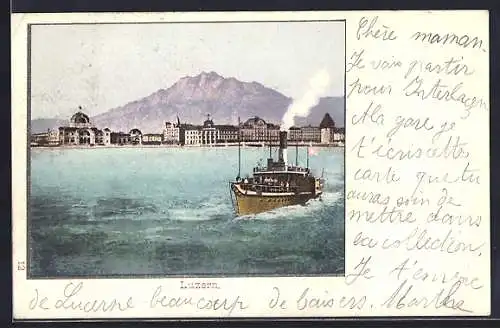 Chère maman.
Je vais partir
pour Interlaken
A la gare je
t'écris cette
carte que tu
auras soin de
mettre dans
ta collection.
Je t'envoie
de Lucerne beaucoup de baisers. Marthe
Luzern.
12